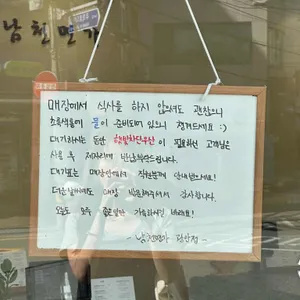 남천면가
매장에서 식사를 하지 않으셔도 괜찮으니
물이 준비되어 있으니 챙겨드세요 :)
대기하시는 동안 이 필요하신 고객님은
사용 후 제자리에 반납부탁드립니다.
대기표는 매장안에서 직원분께 안내받으세요!
더운날씨에도 매장 방문해주셔서 감사합니다.
오늘도 모두 좋은일만 가득하시길 바래요!
- 남천면가 -